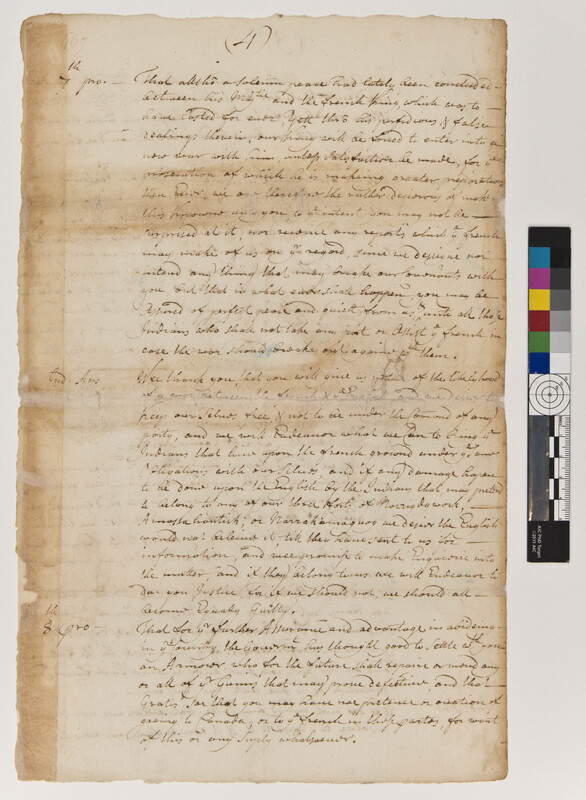 (4)
7th pro. — That altho a Solemn peace had lately been concluded
between his Majtie and the french King, which was to —
have lasted for ever, yett thrō his perfidious & false
dealings therein, our King will be forced to enter into a
new Warr with him, unless Satisfaction be made, for ye
prosecution of which he is makeing greater preparations
then Ever, we are therefore the rather desirous of make
this knowne unto you to ye intent you may not be —
surprised at it, nor receive any reports which ye french
may make of us on yt regard, since we desire nor
intend any thing that may break our Covenants with
you but that in what ever shall happen you may be
Assured of perfect peace and quiet from us, with all those
Indians who shall not take any part or Assist ye french in
case the war should breake out againe wth them.
Ind. Ans. Wee thank you, that you will give us notice of the likelyhood
of a war between the french & and we desire to
keep our Selves free & not to be under the Comand of any
party, and we will Endeavor what we Can to bring ye
Indians that live upon the french ground under ye same
Obligations with our Selves, and if any damage happen
to be done upon the English by the Indians that may pretend
to belong to any of our three forts of Norrigwock, —
Amassacontick, or Narrakamagwog we desire the English
would not believe it, till they have sent to us for
information, and wee promise to make Enquirie into
the matter, and if they belong to us we will Endeavor to
doe you Justice for if we should not, we should all —
become Equaly Guilty.
8th pro — That for yr further Assurance and advantage in abideing
in yr Country, the Governr has thought good to Settle wth you
an Armorer who for the future shall repaire or mend any
or all of yr Gunns that may prove defective, and that
Gratis, so that you may have noe pretence or occasion of
goeing to Canada, or to ye french in those partes, for want
of this or any Suply whatsoever.